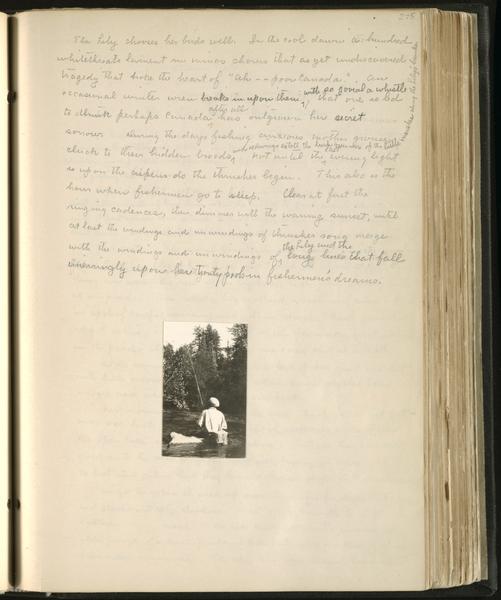 275
The Lily chooses her birds well. In the cool dawn a hundred
whitethroats lament in minor chorus that as yet undiscovered
tragedy that broke the heart of "Ah -- poor Canada". An
occasional winter wren breaks in upon them, with so jovial a whistle that one is led
to think perhaps Canada after all has outgrown her secret
sorrow. During the day fishing
cluck to their hidden broods, not until the last evening light
is upon the aspens do the thrushes begin. This also is the
hour when fishermen go to sleep. Clear at first the
ringing cadences, then dimmer with the waning sunset, until
at last the windings and unwindings of thrushes song merge
with the windings and unwindings of the Lily and the long lines that fall
unceasingly upon trouty pools in fishermen's dreams.